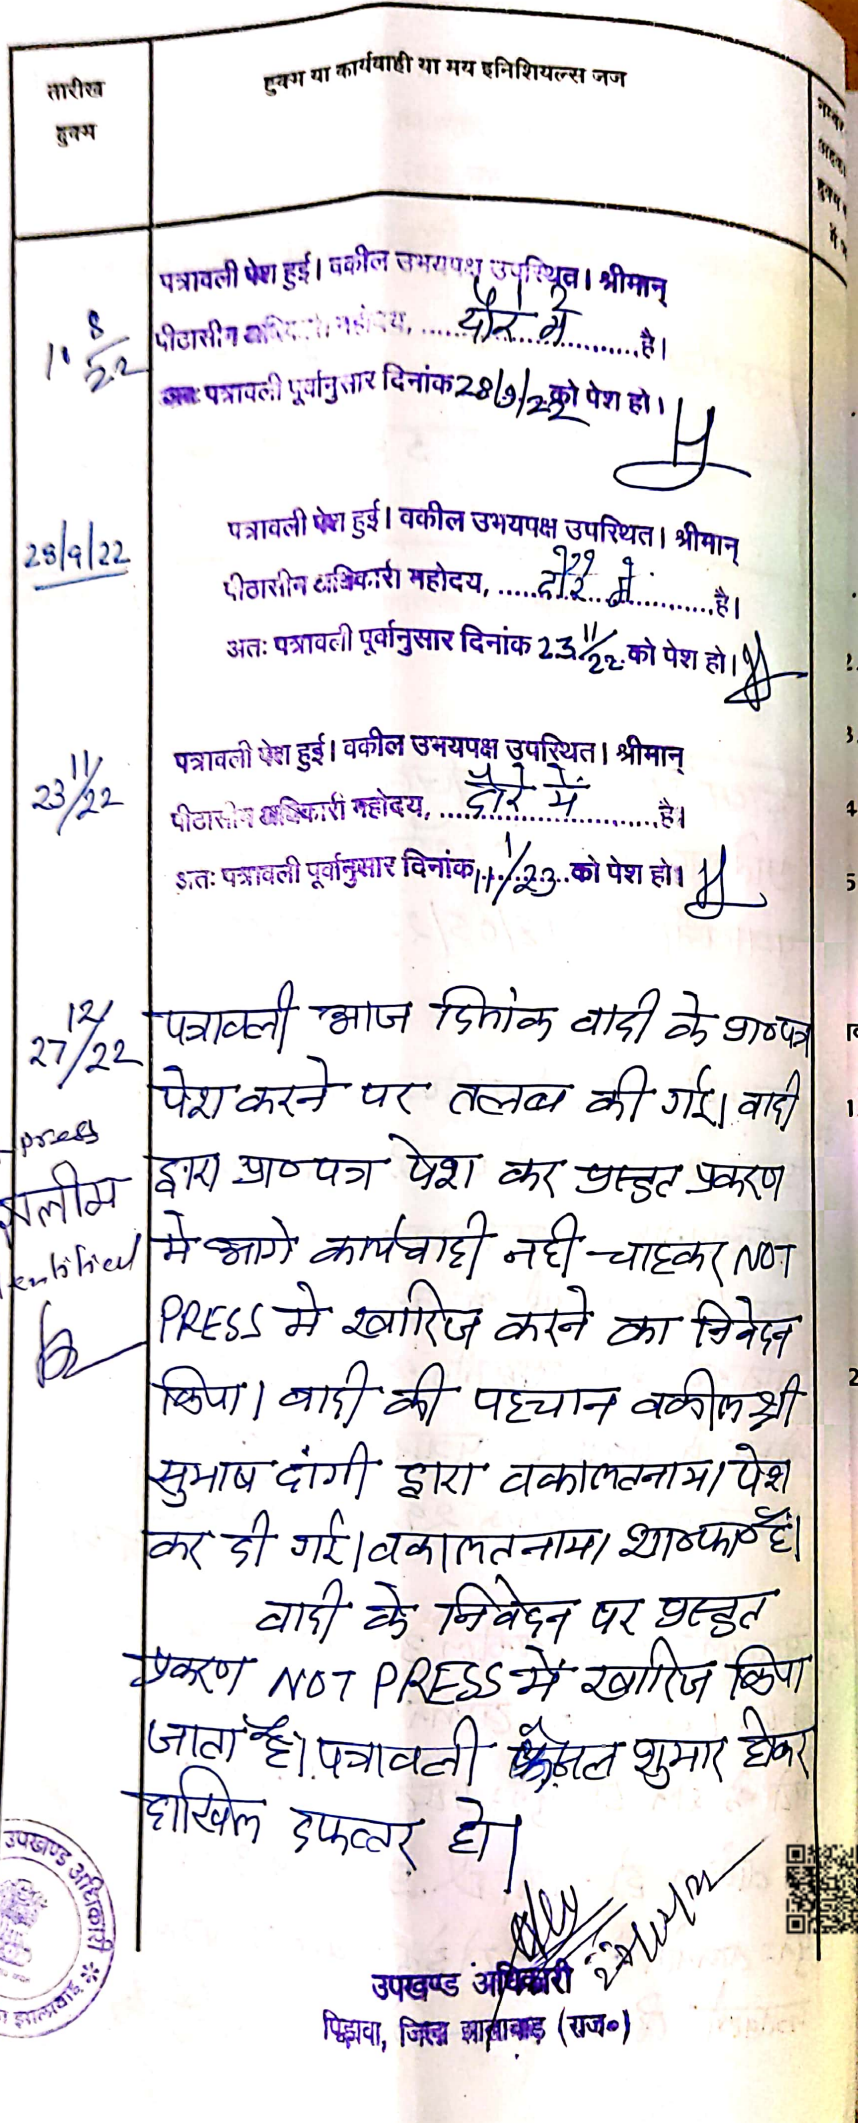 तारीख
हुक्म
हुक्म या कार्यवाही या मय इनिशियल्स जज
पत्रावली पेश हुई। वकील उभयपक्ष उपस्थित। श्रीमान्
1. 8/22
पीठासीन अधिकारी महोदय, ......दौरे में......है।
अतः पत्रावली पूर्वानुसार दिनांक 28/9/22 को पेश हो।
28/9/22
पत्रावली पेश हुई। वकील उभयपक्ष उपस्थित। श्रीमान्
पीठासीन अधिकारी महोदय, ......दौरे में......है।
अतः पत्रावली पूर्वानुसार दिनांक 23 11/22 को पेश हो।
23 11/22
पत्रावली पेश हुई। वकील उभयपक्ष उपस्थित। श्रीमान्
पीठासीन अधिकारी महोदय, ......दौरे में......है।
अतः पत्रावली पूर्वानुसार दिनांक 11 1/23 को पेश हो।
27 12/22
पत्रावली आज दिनांक वादी के प्रा०पत्र
पेश करने पर तलब की गई। वादी
press
द्वारा प्रा०पत्र पेश कर प्रस्तुत प्रकरण
में आगे कार्यवाही नही चाहकर NOT
PRESS में खारिज करने का निवेदन
किया। वादी की पहचान वकील श्री
सुभाष दांगी द्वारा वकालतनामा पेश
कर दी गई। वकालतनामा शा०फा० है।
वादी के निवेदन पर प्रस्तुत
प्रकरण NOT PRESS में खारिज किया
जाता है। पत्रावली फैसल शुमार होकर
दाखिल दफ्तर हो।
उपखण्ड अधिकारी
उपखण्ड अधिकारी
पिड़ावा, जिला झालावाड़ (राज०)
झालावाड़